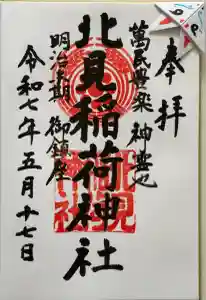 奉拝
萬民豊楽 神霊也
北見稲荷神社
明治末期 御鎮座
令和七年五月十七日